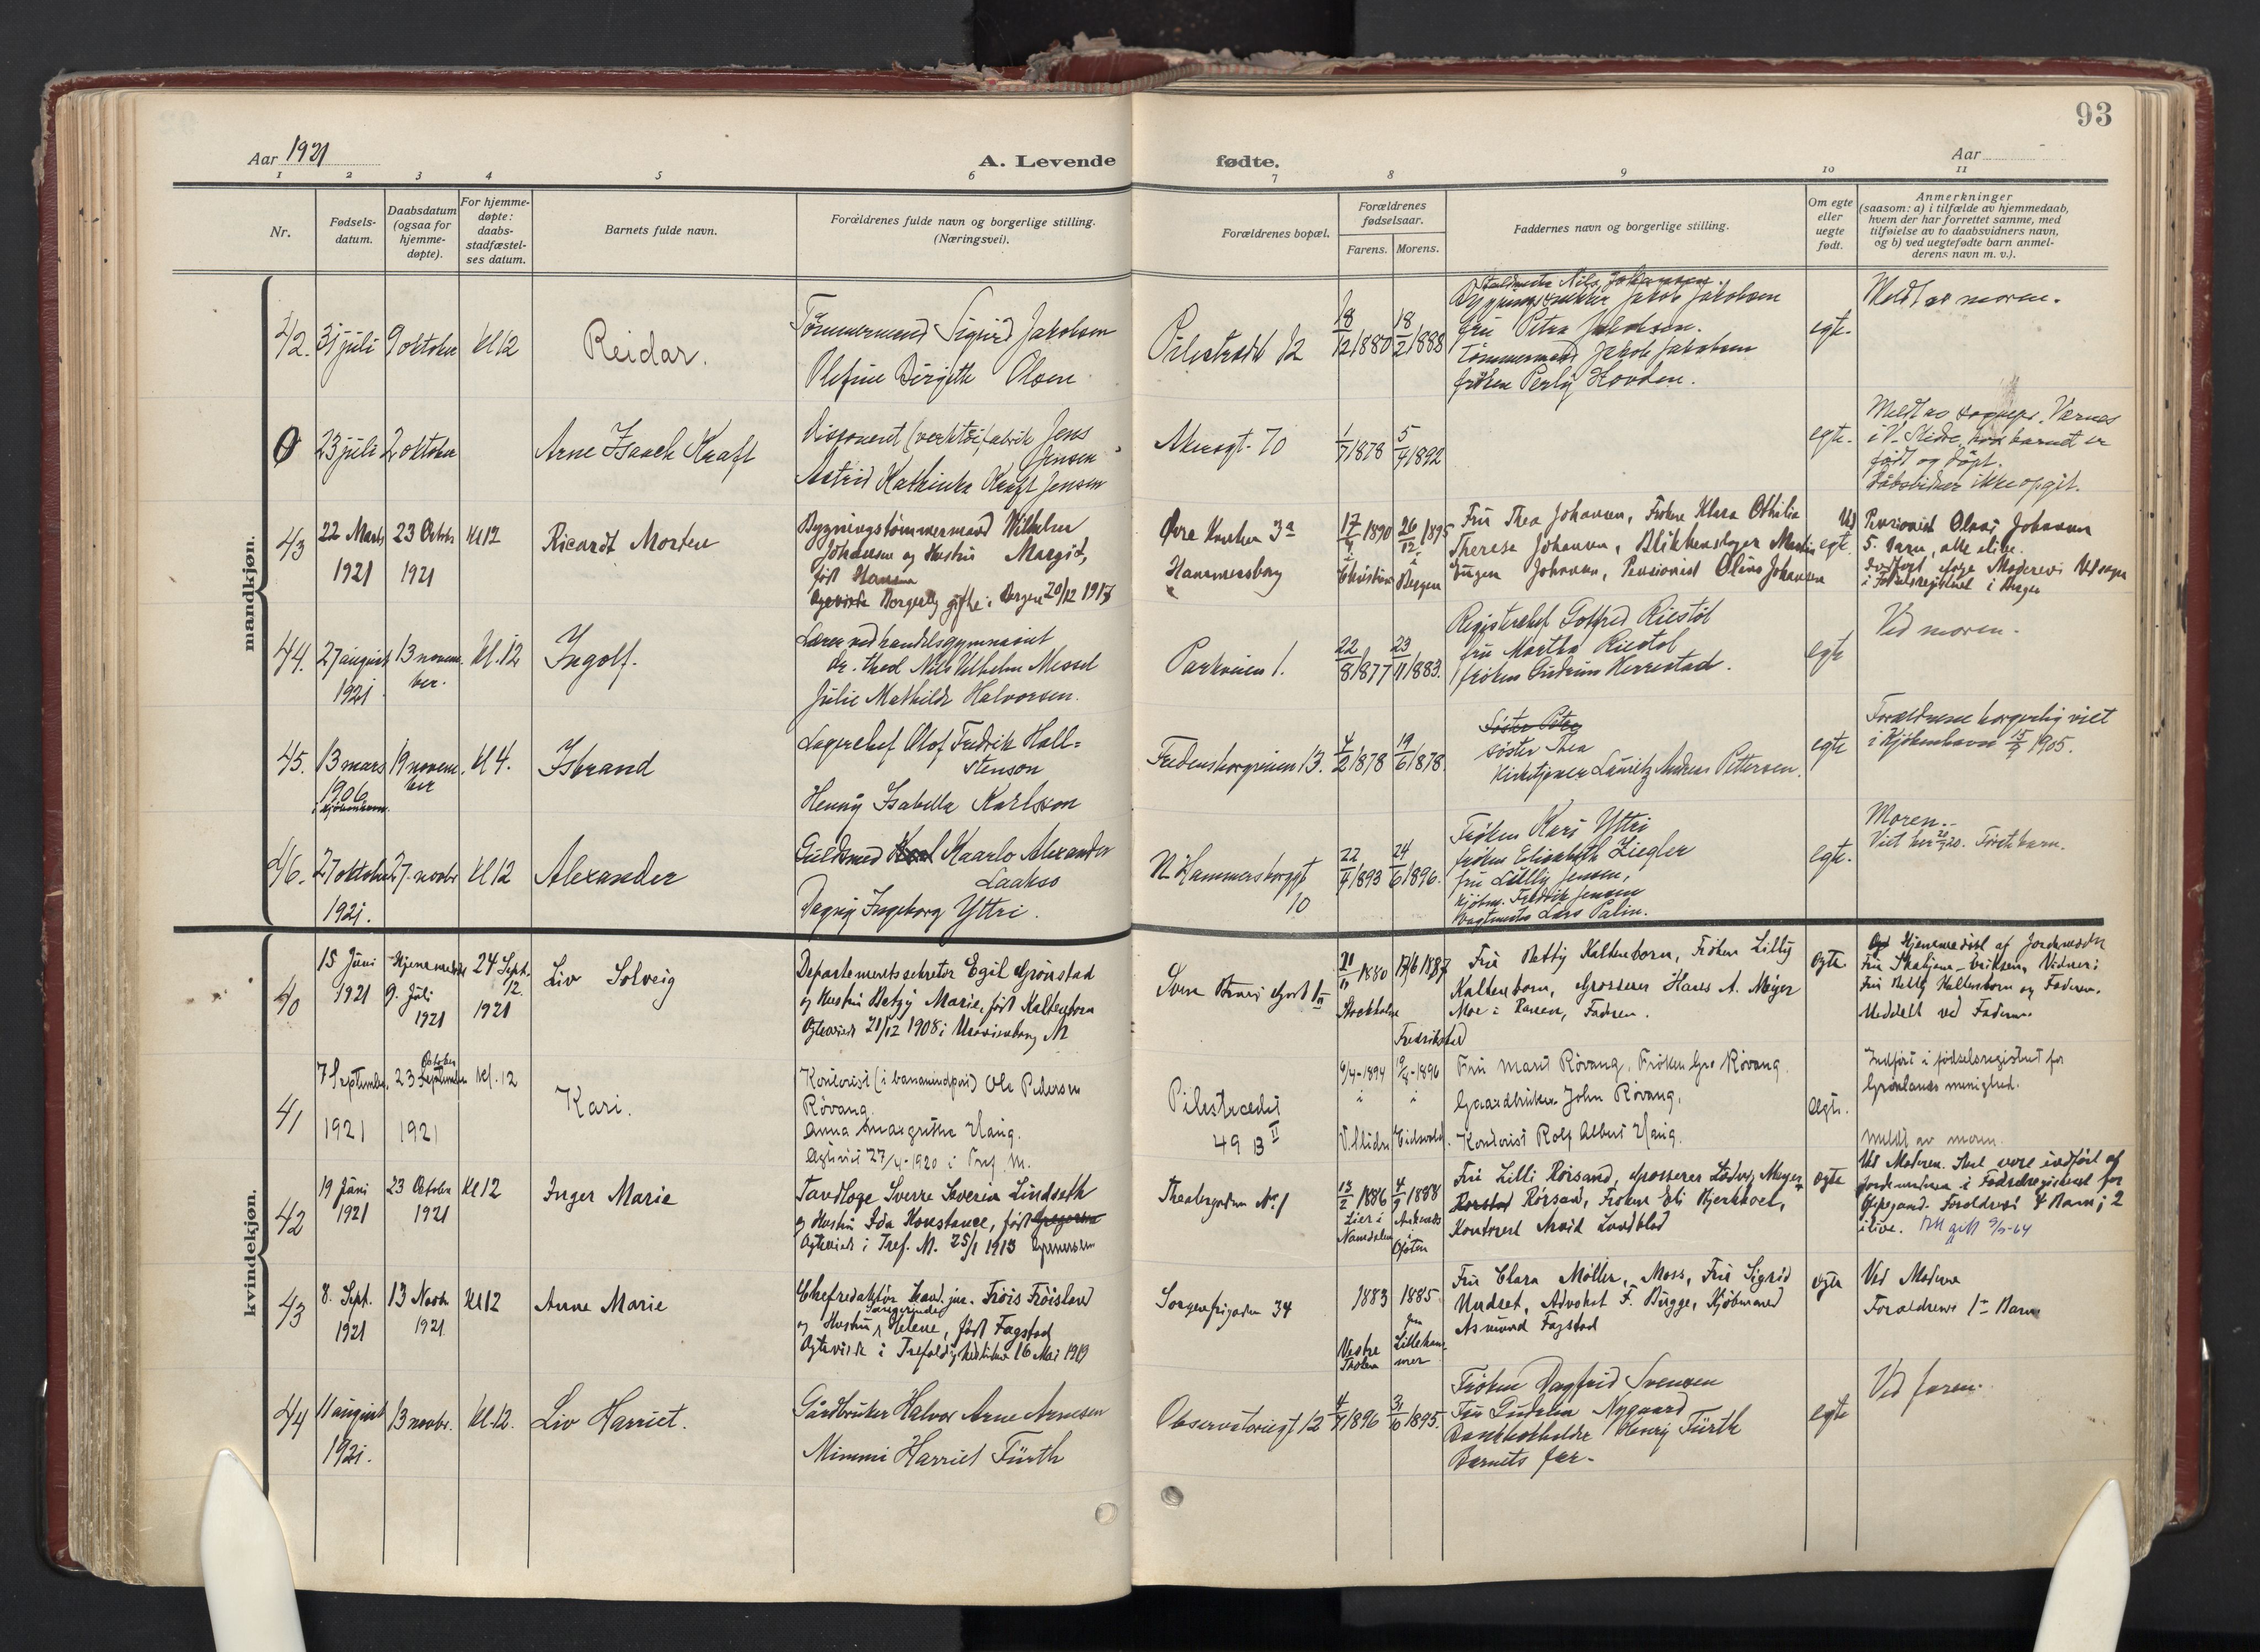 93
Aar 1921
A. Levende fødte.
Aar
1 2 3 4 5 6 7 8 9 10 11
Nr.
Fødsels-
datum.
Daabsdatum
(ogsaa for
hjemme-
døpte).
For hjemme-
døpte:
daabs-
stadfæstel-
ses datum.
Barnets fulde navn.
Forældrenes fulde navn og borgerlige stilling.
(Næringsvei).
Forældrenes bopæl.
Forældrenes
fødselsaar.
Farens. Morens.
Faddernes navn og borgerlige stilling.
Om egte
eller
uegte
født.
Anmerkninger
(saasom: a) i tilfælde av hjemmedaab,
hvem der har forrettet samme, med
tilføielse av to daabsvidners navn,
og b) ved uegtefødte barn anmel-
derens navn m. v.).
mandkjøn.
42. 31 juli 9 oktober kl 12
Reidar.
Tømmermand Sigurd Jakobsen
Olefine Birgitte Olsen
Pilestrædet 12
18/12 1880 18/2 1888
Nils Johannesen
Jakob Jakobsen
fru Petra Jakobsen.
Tømmermand Jakob Jakobsen
frøken Perly Hovden.
egte.
Meldt av moren.
0 23 juli 2 oktober
Arne Isaach Kraft
Disponent (verktøifabrik Jens
Jensen
Astrid Kathinka Kraft Jensen
Akersgt. 70
1/7 1878 5/4 1892
egte.
Meldt av sognepr. Værnes
i V. Slidre, hvor barnet er
født og døpt.
ikke opgit.
43 22 Marts 23 Octob. Kl 12
1921 1921
Ricardt Morten
Bygningstømmermand Wilhelm
Johansen og Hustru Margit,
født Hansen
Borgerlig gifte i Bergen 20/12 1917
Øvre 3a
Hammersborg
17/4 1890 26/12 1895
i i
Christiania Bergen
Fru Thea Johansen, Frøken Klara Othilia
Therese Johansen, Blikkenslager Martin
Eugen Johansen, Pensionist Olaus Johansen
egte.
Ved Pensionist Olaus Johansen
5. Barn, alle ilive.
i Fødselsregistret i Bergen
44. 27 august 13 novem- kl. 12
1921 ber.
Ingolf.
Lærer ved handelsgymnasiet
dr. theol Nils Vilhelm Messel
Julie Mathilde Halvorsen.
Parkveien 1.
22/8 1877 23/11 1883.
Registerchef Gotfred Riestøl
fru Martha Riestøl
frøken Gudrun Herrestad.
egte
Ved moren.
45. 13 mars 19 novem- kl 4.
1906 ber
i Kjøbenhavn.
Isbrand
Lagerchef Olof Fredrik Hall=
stenson
Henny Isabella Karlsson
Fredensborgveien 13.
4/2 1878 19/6 1878.
Søster Petra
søster Thea
Kirketjener Lauritz Andreas Pettersen.
egte
Forældrene borgerlig viet
i Kjøbenhavn 1905.
46. 27 oktober 27. novbr kl 12
1921.
Alexander
Guldsmed Karl Kaarlo Alexander
Laakso
Dagny Ingeborg Yttri.
N. Hammersborggt
10
22/4 1893 24/6 1896.
Frøken Kari Yttri
frøken Elisabeth Ziegler
fru Lilly Jensen,
kjøbm. Fredrik Jensen
Vagtmester Lars Palin.
egte.
Moren.
Viet her 20. Første barn.
kvindekjøn.
40 15 Juni Hjemmedøbt 24 Sept.
1921 9. Juli 12.
1921 1921
Liv Solveig
Departementssekretær Egil Grønstad
og Hustru Betzy Marie, født Kaltenborn
Ægteviede 21/12 1908 i Uranienborg M
21/11 1880 17/6 1887
Stockholm
Fredrikstad
Fru Betty Kaltenborn, Frøken Lilly
Kaltenborn, Grosserer Hans A. Meyer
Moe i Ranen, Faderen.
ægte
Hjemmedøbt af Jordmoder
Fru Skatjern-Eriksen, Vidner:
Fru Betty Kaltenborn og Faderen.
Meddelt ved Faderen.
41 7 September 23 September October kl. 12
1921 1921
Kari.
Kontorist (i bananimport) Ole Pedersen
Røvang.
Anna Margrethe Haug.
Ægteviet 27/4-1920 i Tref. M.
Pilestrædet
49 B II
9/4-1894 1896
i i
V. Slidre Eidsvold.
Fru Marit Røvang, Frøken Gro Røvang
Gaardbruker John Røvang,
Kontorist Rolf Albert Haug.
egte.
Indført i fødselsregistret for
Grønlands menighed.
Meldt av moren.
42 19 Juni 23 October Kl 12
1921 1921
Inger Marie
Tandlæge Sverre Severin Lindseth
og Hustru Ida Konstance, født Gregersen
Ægteviede i Tref. M. 25/1 1913
Theatergaden No. 1
13/2 1886 4/9 1888
Namdalen
Ofoten
Fru Lilli Rørsand, Grosserer Ludvig Meyer
Rørsand, Frøken Eli Bjerkhoel,
Kontorist Arvid Lundblad
ægte
Ved Moderen. Skal være indført af
Jordmoderen i Fødselsregistret for
Oppegaard. Forældrenes 4 Barn; 2
ilive.
43 8. Sept. 13 Novb. Kl 12
1921 1921
Anne Marie
Chefredaktør kand. jur. Frois Frøisland
Sangerinde
og Hustru Helene, født Fagstad
Ægteviede i Trefoldighedskirken 16 Mai 1919
Sorgenfrigaden 34
1883 1885
Vestre
Lilleham-
mer
Fru Clara Møller, Moss, Fru Sigrid
Undset, Advokat F. Bugge, Kjøbmand
Asmund Fagstad
ægte
Ved Moderen
Forældrenes 1ste Barn
44 11 august 13 novbr. kl. 12.
1921.
Liv Harriet.
Gårdbruker Halvor Arne Arnesen
Mimmi Harriet Fürth
Observatoriegt 12
1896 1895.
Frøken Dagfrid Svensen
Fru Nygaard
Henry Fürth
Barnets far.
egte
Ved faren.